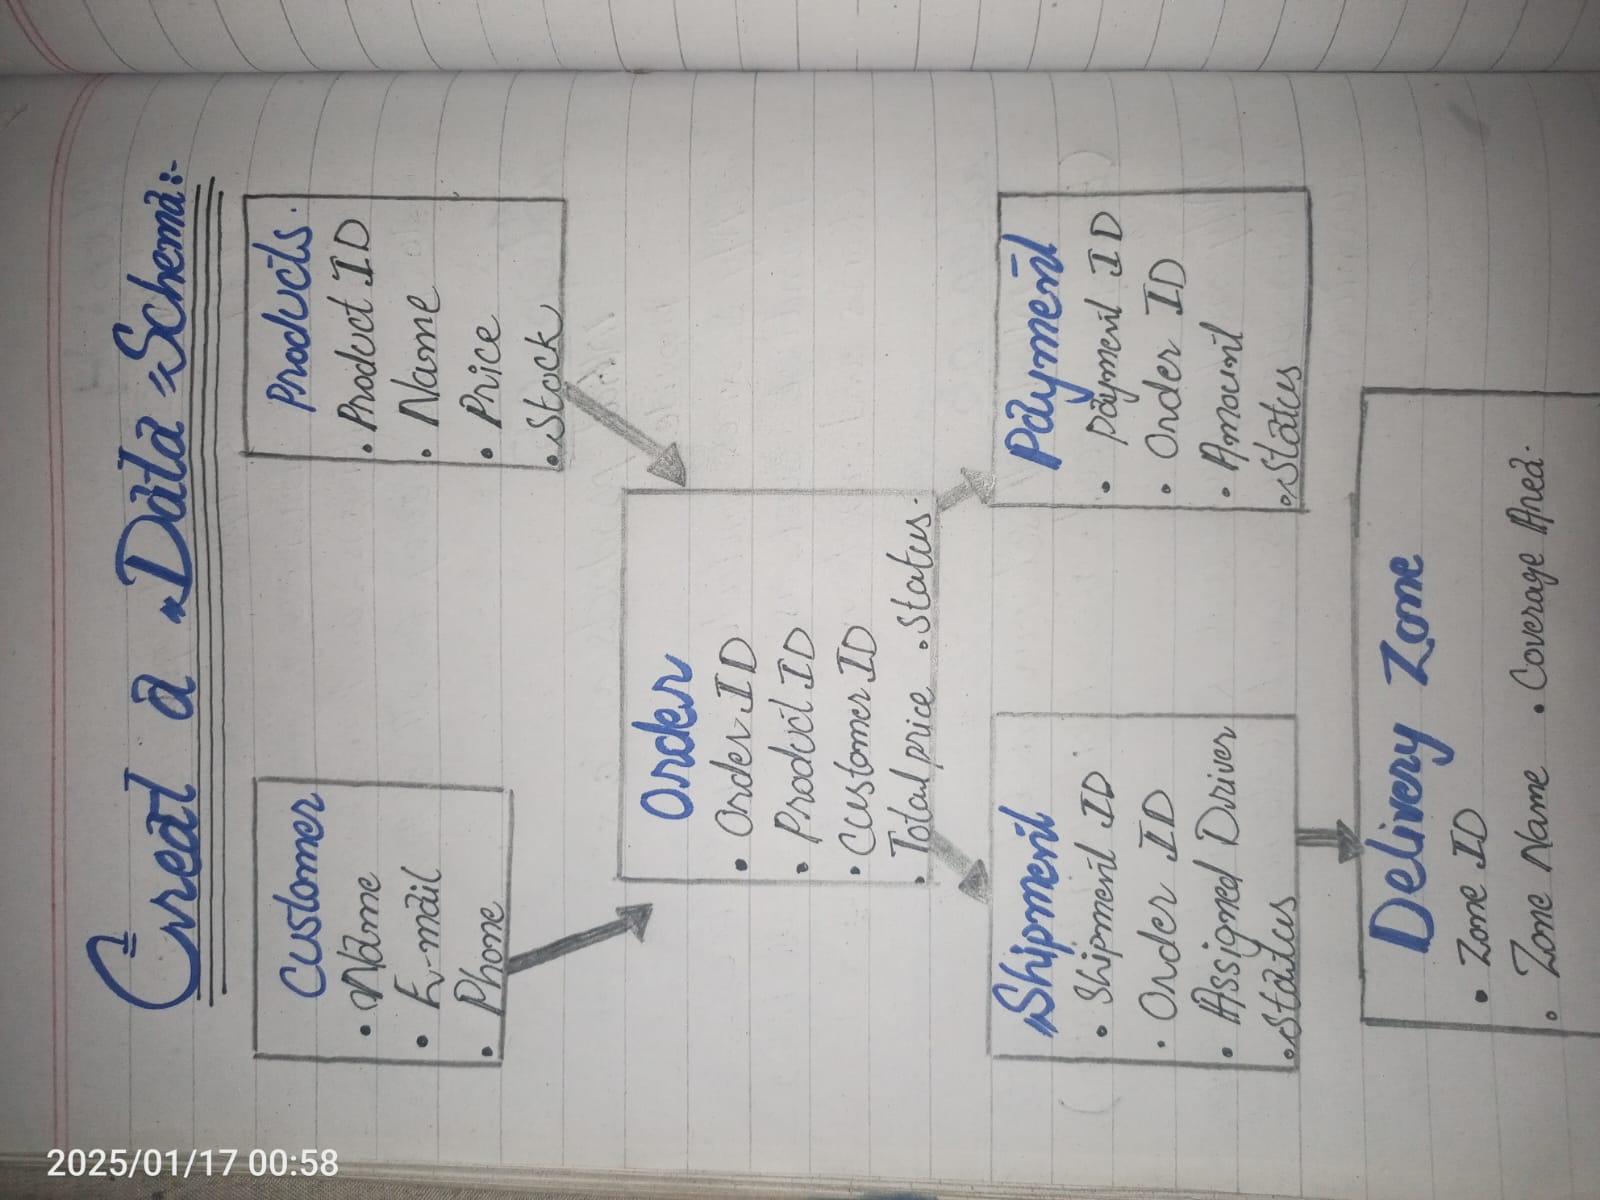 Creat a "Data "Schema:-
Customer
• Name
• E-mail
• Phone
Products.
• Product ID
• Name
• Price
• Stock
Order
• Order ID
• Product ID
• Customer ID
• Total price • Status.
Shipment
• Shipment ID
• Order ID
• Assigned Driver
• Status
Payment
• Payment ID
• Order ID
• Amount
• Status
Delivery Zone
• Zone ID
• Zone Name • Coverage Area.
2025/01/17 00:58